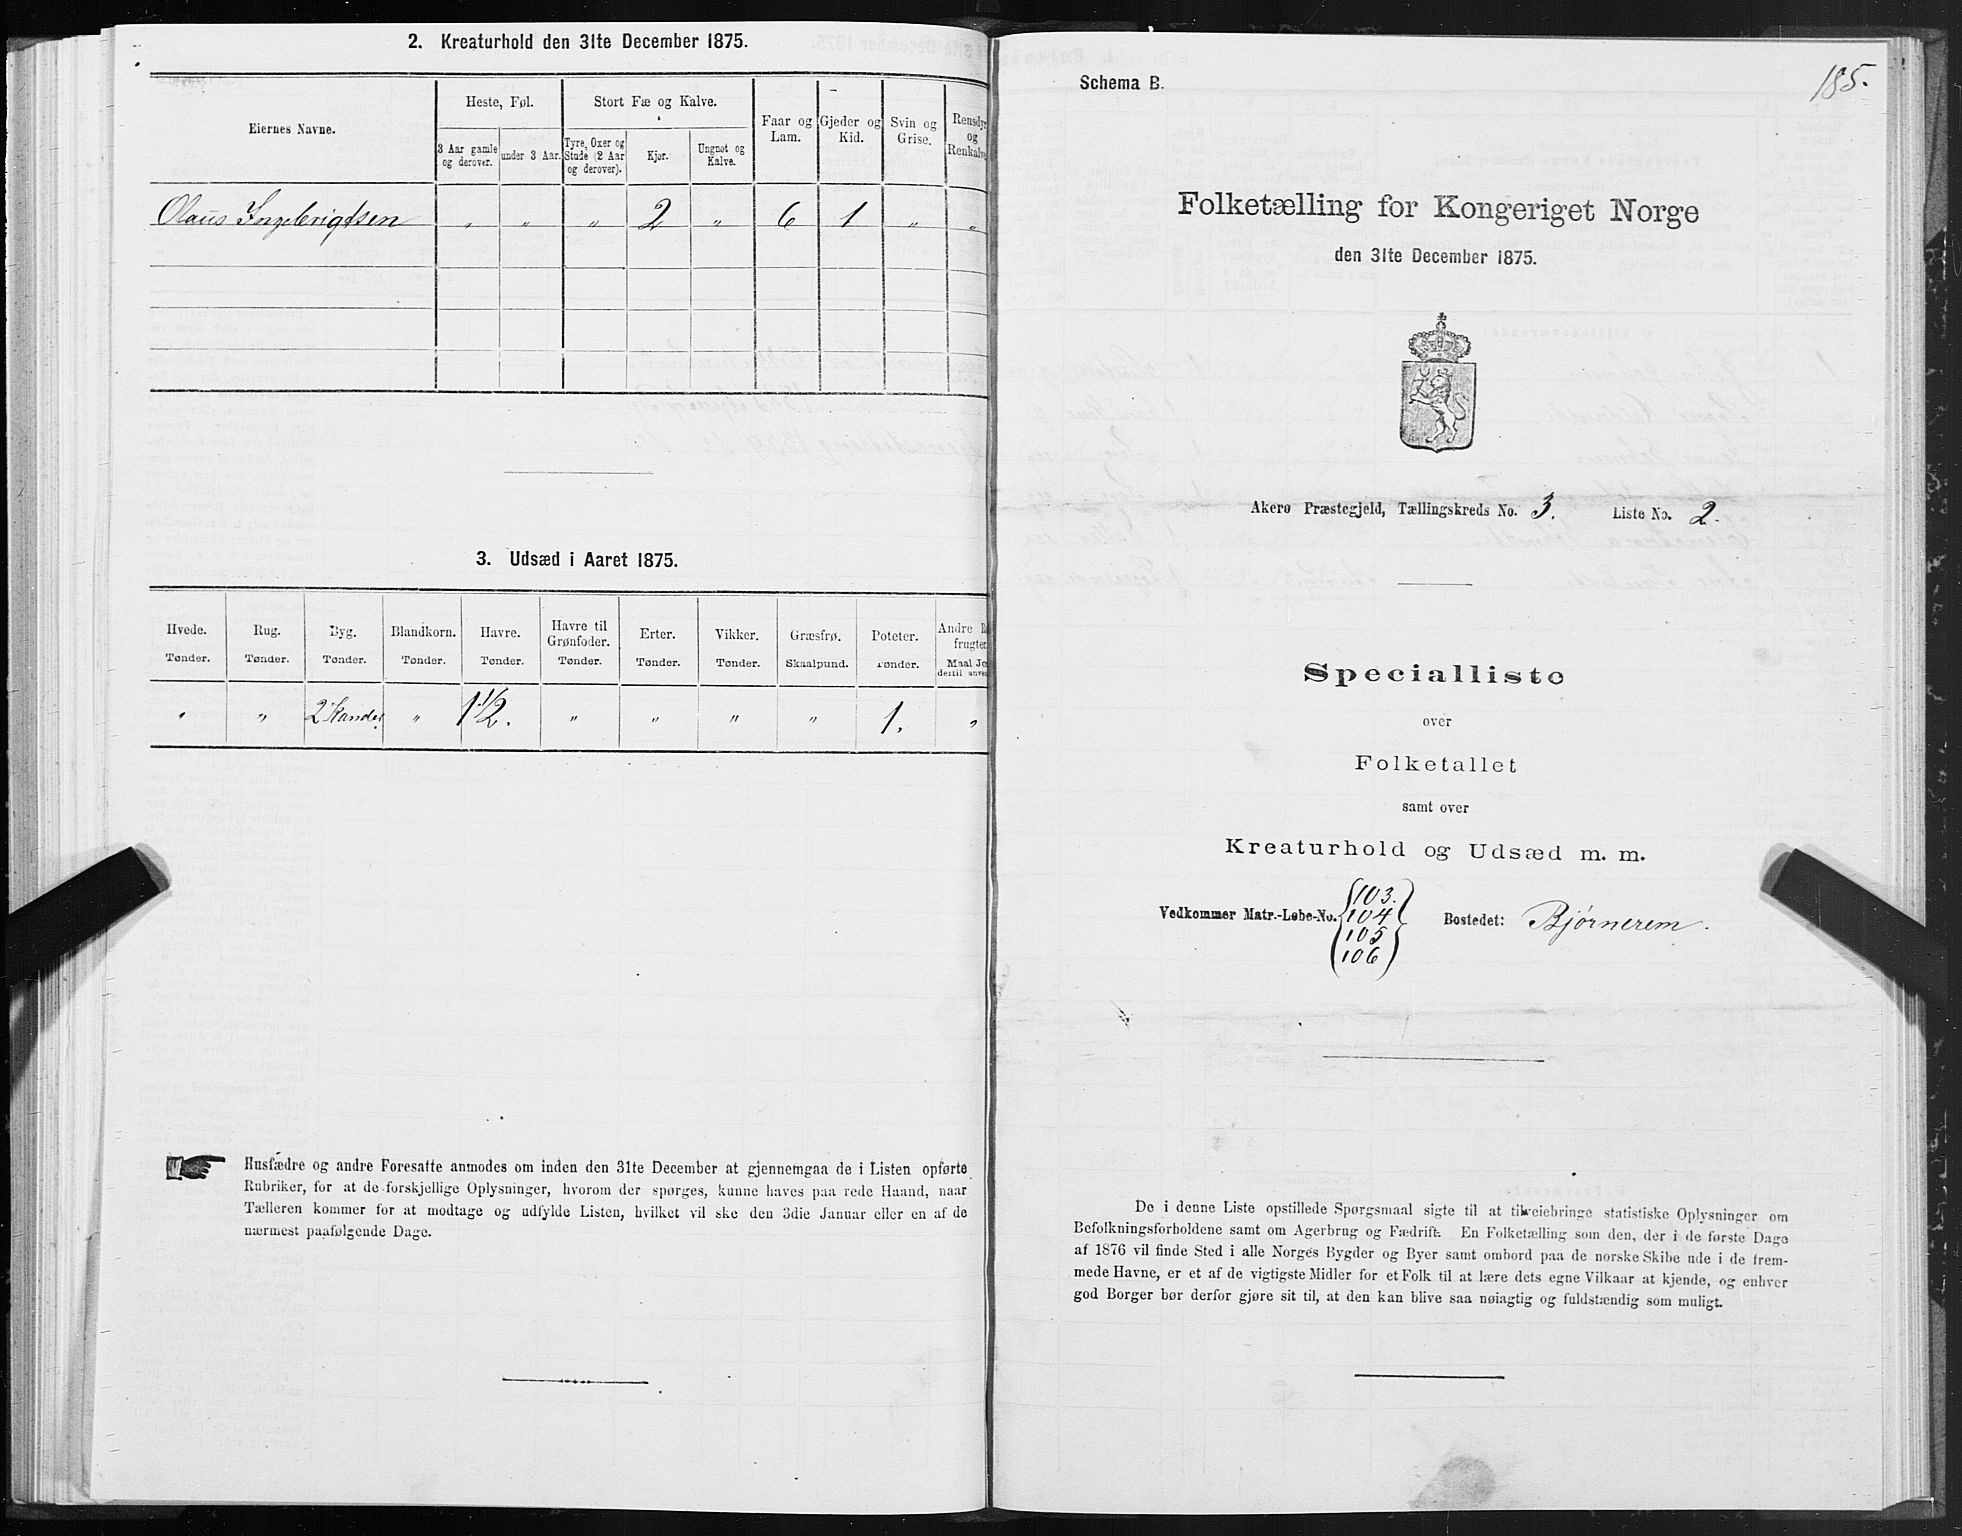 2. Kreaturhold den 31te December 1875.
Eiernes Navne.
Heste, Føl.
Stort Fæ og Kalve.
Faar og Lam.
Gjeder og Kid.
Svin og Grise.
Rensdyr og Renkalve
3 Aar gamle og derover.
under 3 Aar.
Tyre, Oxer og Stude (2 Aar og derover).
Kjør.
Ungnøt og Kalve.
Olaus Ingebrigtsen " " " 2 " 6 1 " "
3. Udsæd i Aaret 1875.
Hvede. Rug. Byg. Blandkorn. Havre. Havre til Grønfoder. Erter. Vikker. Græsfrø. Poteter. Andre
frugter
Tønder. Tønder. Tønder. Tønder. Tønder. Tønder. Tønder. Tønder. Skaalpund. Tønder. Maal
dertil
" " 2 Kander " 1 1/2. " " " " 1. "
Husfædre og andre Foresatte anmodes om inden den 31te December at gjennemgaa de i Listen opførte
Rubriker, for at de forskjellige Oplysninger, hvorom der spørges, kunne haves paa rede Haand, naar
Tælleren kommer for at modtage og udfylde Listen, hvilket vil ske den 3die Januar eller en af de
nærmest paafølgende Dage.
185.
Schema B.
Folketælling for Kongeriget Norge
den 31te December 1875.
Akerø Præstegjeld, Tællingskreds No. 3. Liste No. 2.
Specialliste
over
Folketallet
samt over
Kreaturhold og Udsæd m. m.
Vedkommer Matr.-Løbe-No. 103. 104 105 106 Bostedet: Bjørnerem.
De i denne Liste opstillede Spørgsmaal sigte til at tilveiebringe statistiske Oplysninger om
Befolkningsforholdene samt om Agerbrug og Fædrift. En Folketælling som den, der i de første Dage
af 1876 vil finde Sted i alle Norges Bygder og Byer samt ombord paa de norske Skibe ude i de frem-
mede Havne, er et af de vigtigste Midler for et Folk til at lære dets egne Vilkaar at kjende, og enhver
god Borger bør derfor gjøre sit til, at den kan blive saa nøiagtig og fuldstændig som muligt.